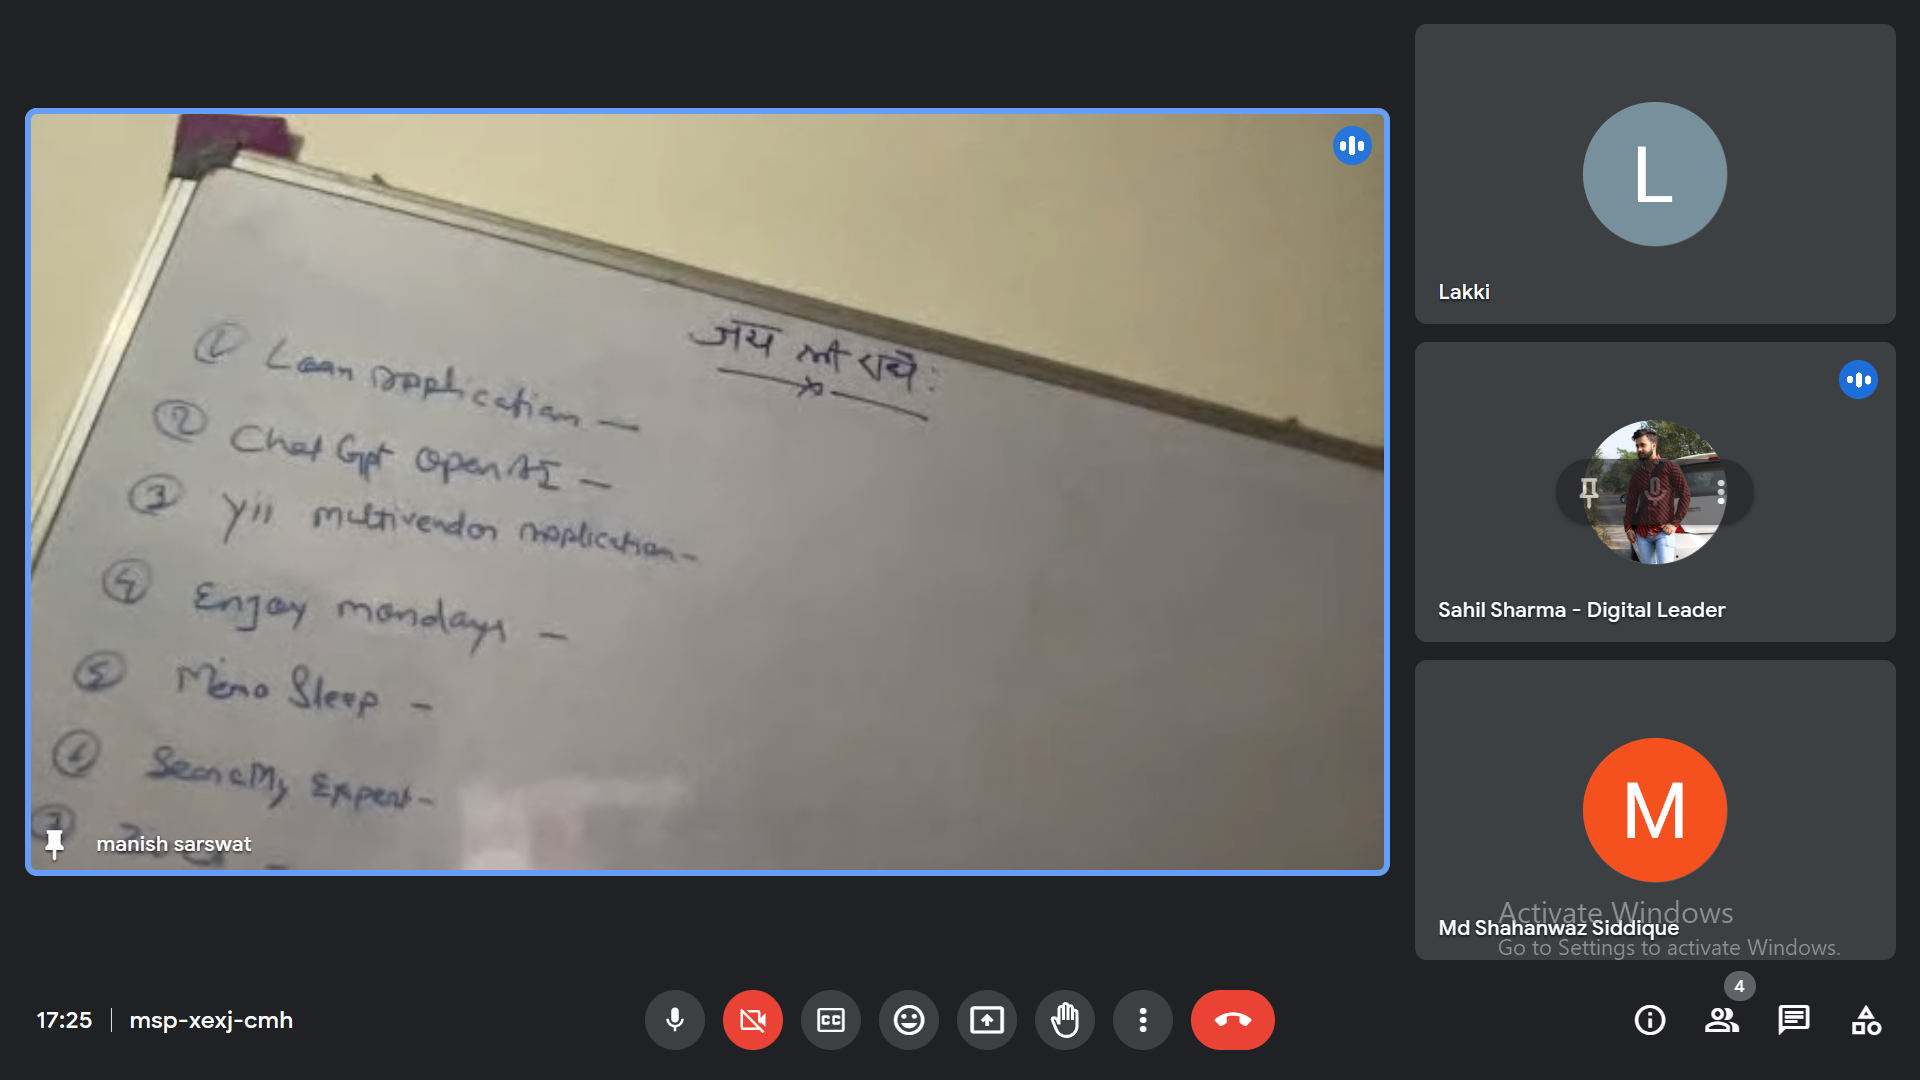 जय श्री राधे:
① Loan Application —
② Chat Gpt Open AI —
③ Yii multivendor Application -
④ Enjoy mondays —
⑤ Memo Sleep -
⑥ Search My Expert -
manish sarswat
L
Lakki
Sahil Sharma - Digital Leader
M
Md Shahanwaz Siddique
Activate Windows
Go to Settings to activate Windows.
17:25 | msp-xexj-cmh
CC
4